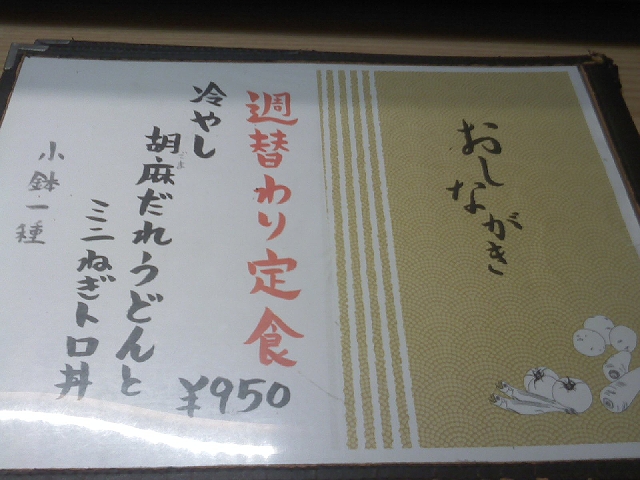 おしながき
週替わり定食
冷やし
胡麻だれうどんと
ミニねぎトロ丼
小鉢一種
¥950